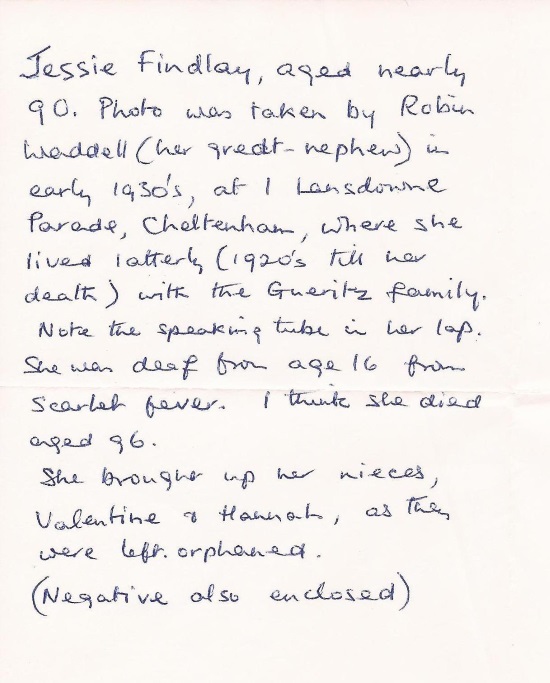 Jessie Findlay, aged nearly
90. Photo was taken by Robin
Waddell (her great-nephew) in
early 1930's, at 1 Lansdowne
Parade, Cheltenham, where she
lived latterly (1920's till her
death) with the Gueritz family.
Note the speaking tube in her lap.
She was deaf from age 16 from
Scarlet fever. I think she died
aged 96.
She brought up her nieces,
Valentine & Hannah, as they
were left orphaned.
(Negative also enclosed)